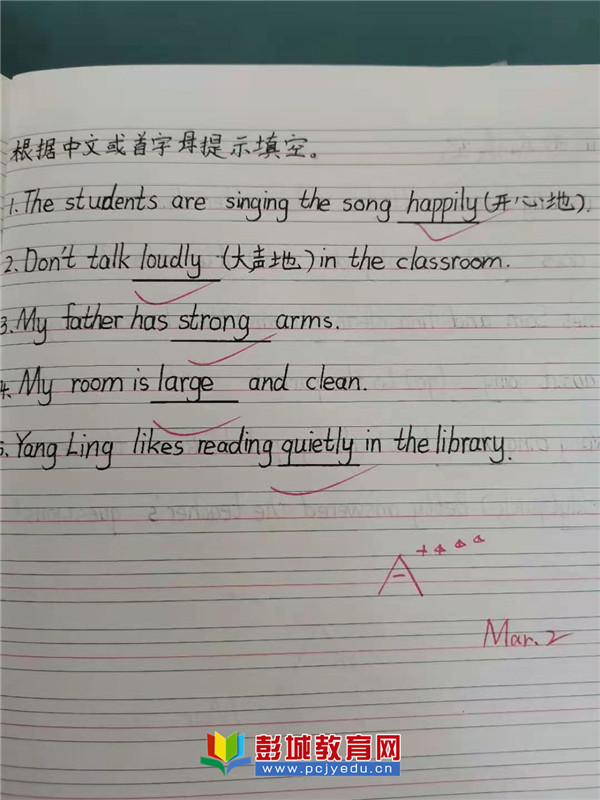 根据中文或首字母提示填空。
1.The students are singing the song happily(开心地).
2.Don't talk loudly (大声地) in the classroom.
3.My father has strong arms.
4.My room is large and clean.
5.Yang Ling likes reading quietly in the library.
A+
Mar.2
彭城教育网
www.pcjyedu.cn